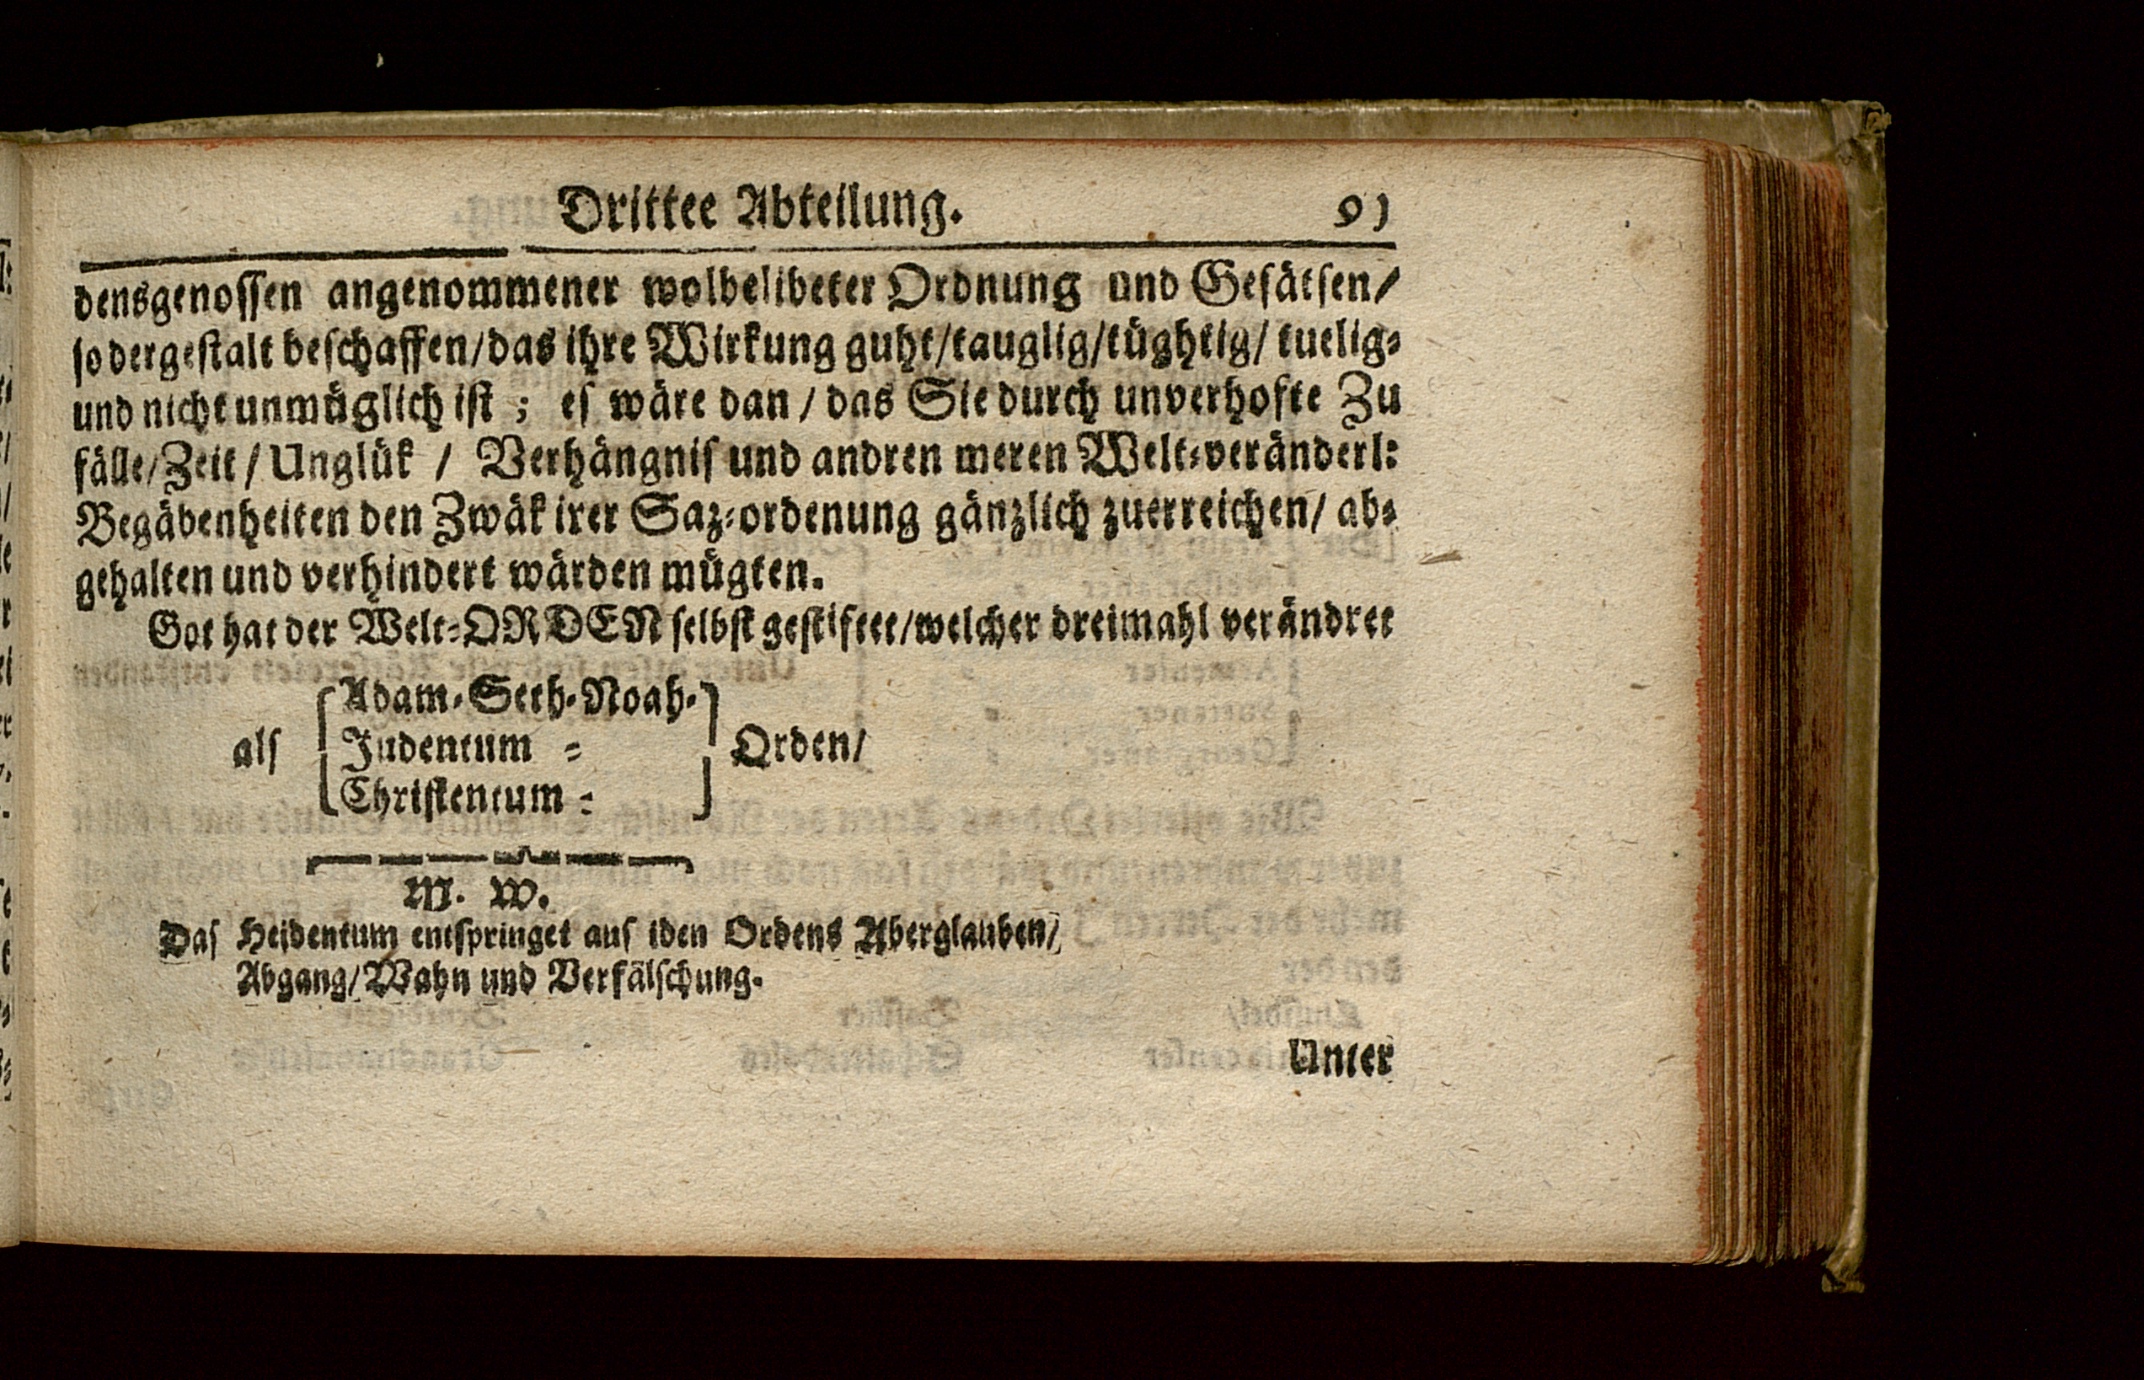 Drittee Abteilung. 91
densgenossen angenommener wolbelibeter Ordnung und Gesätsen/
so dergestalt beschaffen/das ihre Wirkung guht/tauglig/tüghtig/ tuelig⸗
und nicht unmüglich ist ; es wäre dan / das Sie durch unverhofte Zu
fälle/Zeit / Unglük / Verhängnis und andren meren Welt⸗veränderl:
Begäbenheiten den Zwäk irer Saz⸗ordenung gänzlich zuerreichen/ ab⸗
gehalten und verhindert wärden mügten.
Got hat der Welt⸗ORDEN selbst gestiftet/welcher dreimahl verändret
Adam⸗Seth⸗Noah⸗
als Judentum ⸗ Orden/
Christentum ⸗
M. W.
Das Heidentum entspringet aus iden Ordens Aberglauben/
Abgang/Wahn und Verfälschung.
Unter